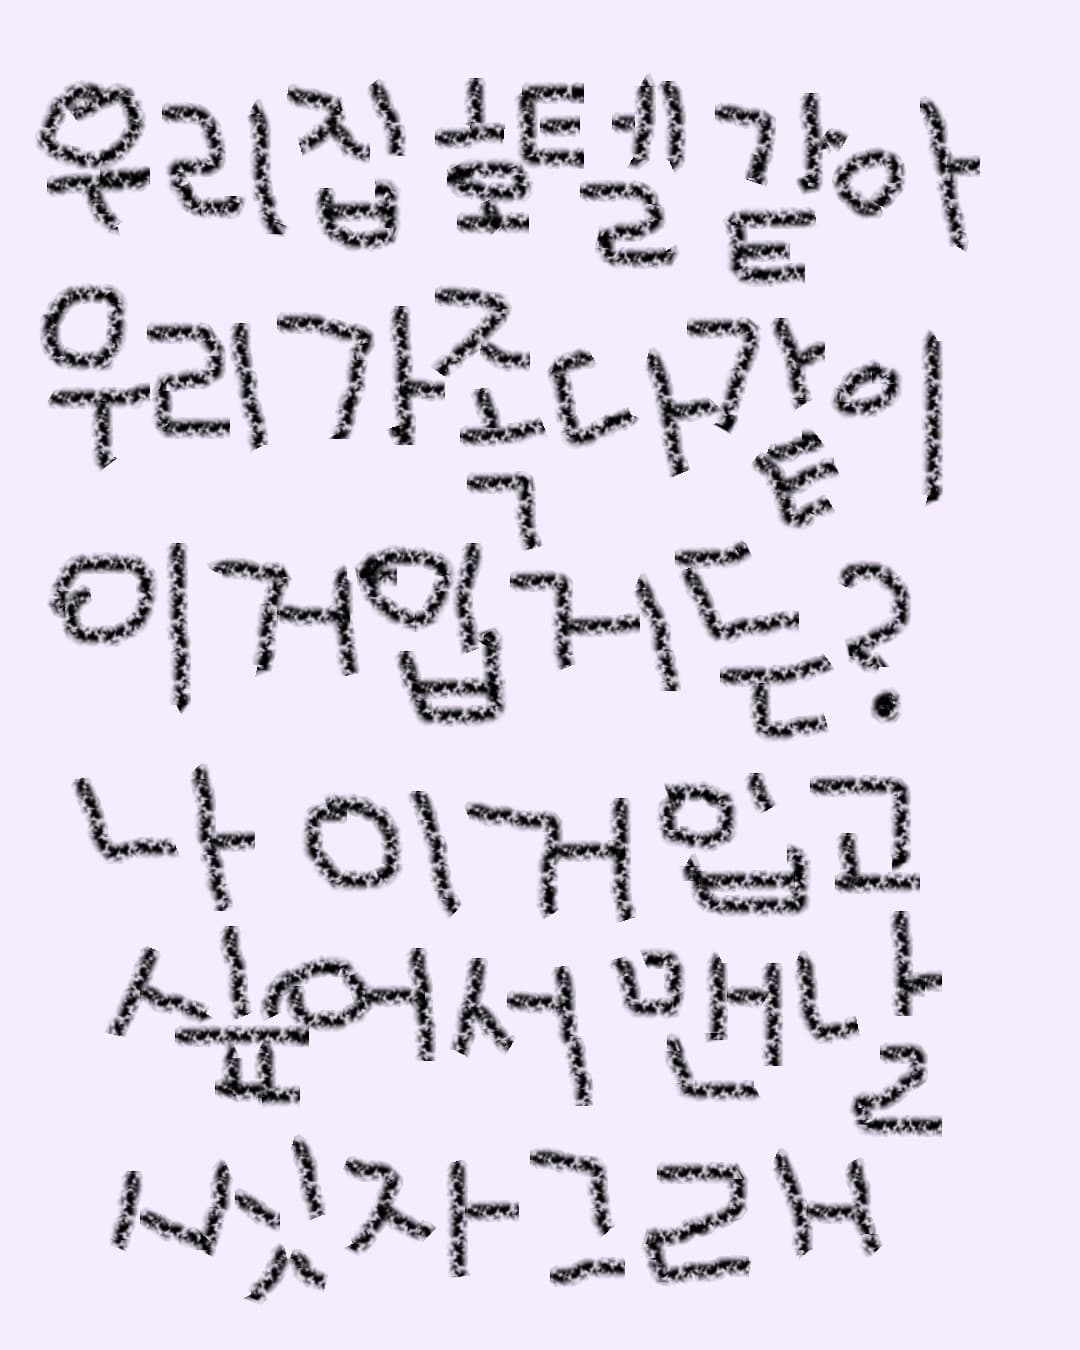 우리집 호텔 같아
우리가족 다 같이
이거입거든?
나 이거입고
싶어서 맨날
씻자그래